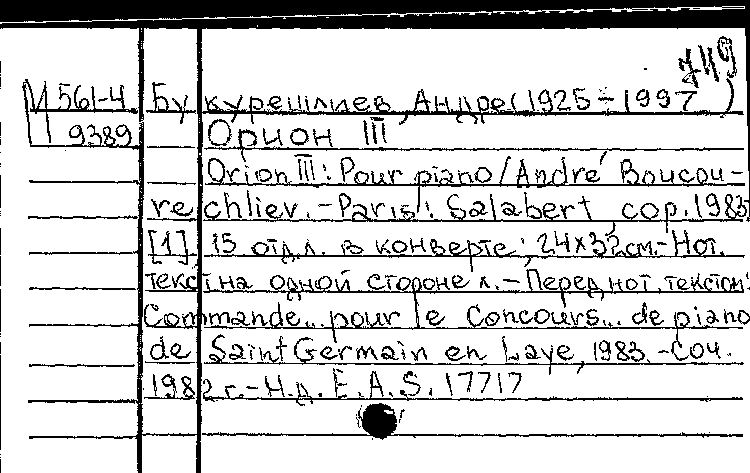 749
М 561-4 Букурешлиев, Андре (1925-1997)
9389 Орион III
Orion III : Pour piano / André Boucou-
rechliev. - Paris : Salabert, cop. 1983.
[1], 15 отд.л. в конверте ; 24х32см. - Нот.
текст на одной стороне л. - Перед нот. текстом:
Commande... pour le Concours... de piano
de Saint Germain en Laye, 1983. - Соч.
1982 г. - Н.д. E.A.S. 17717